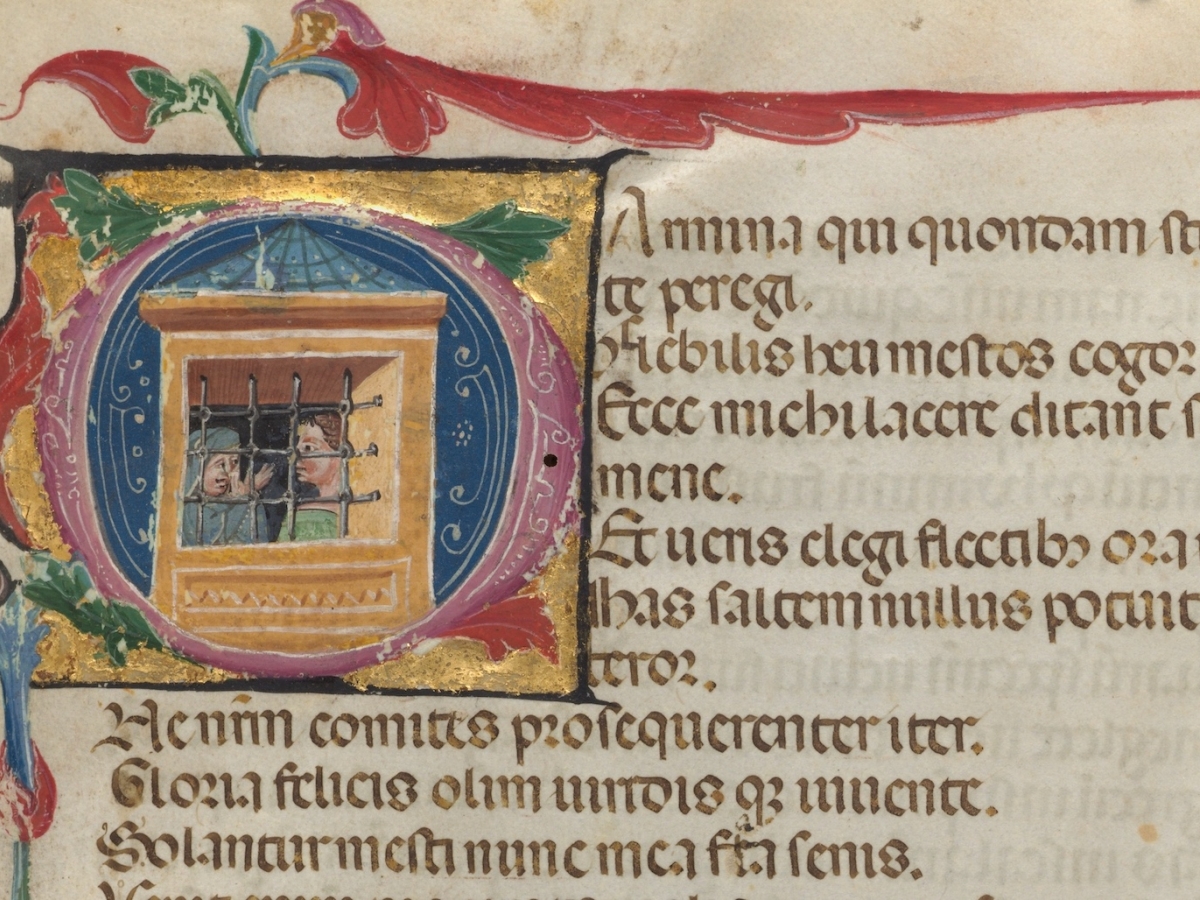 CArmina qui quondam
te peregi.
Flebilis heu mestos cogor
Ecce michi lacere ditant
mene.
Et ueris elegi fleetibꝫ ora
has saltem nullus potuit
teror.
Ne nr̄m comites prosequerenter iter.
Gloria felicis olim uirdis qꝫ iuuente.
Solantur mesti nunc mea fata senis.